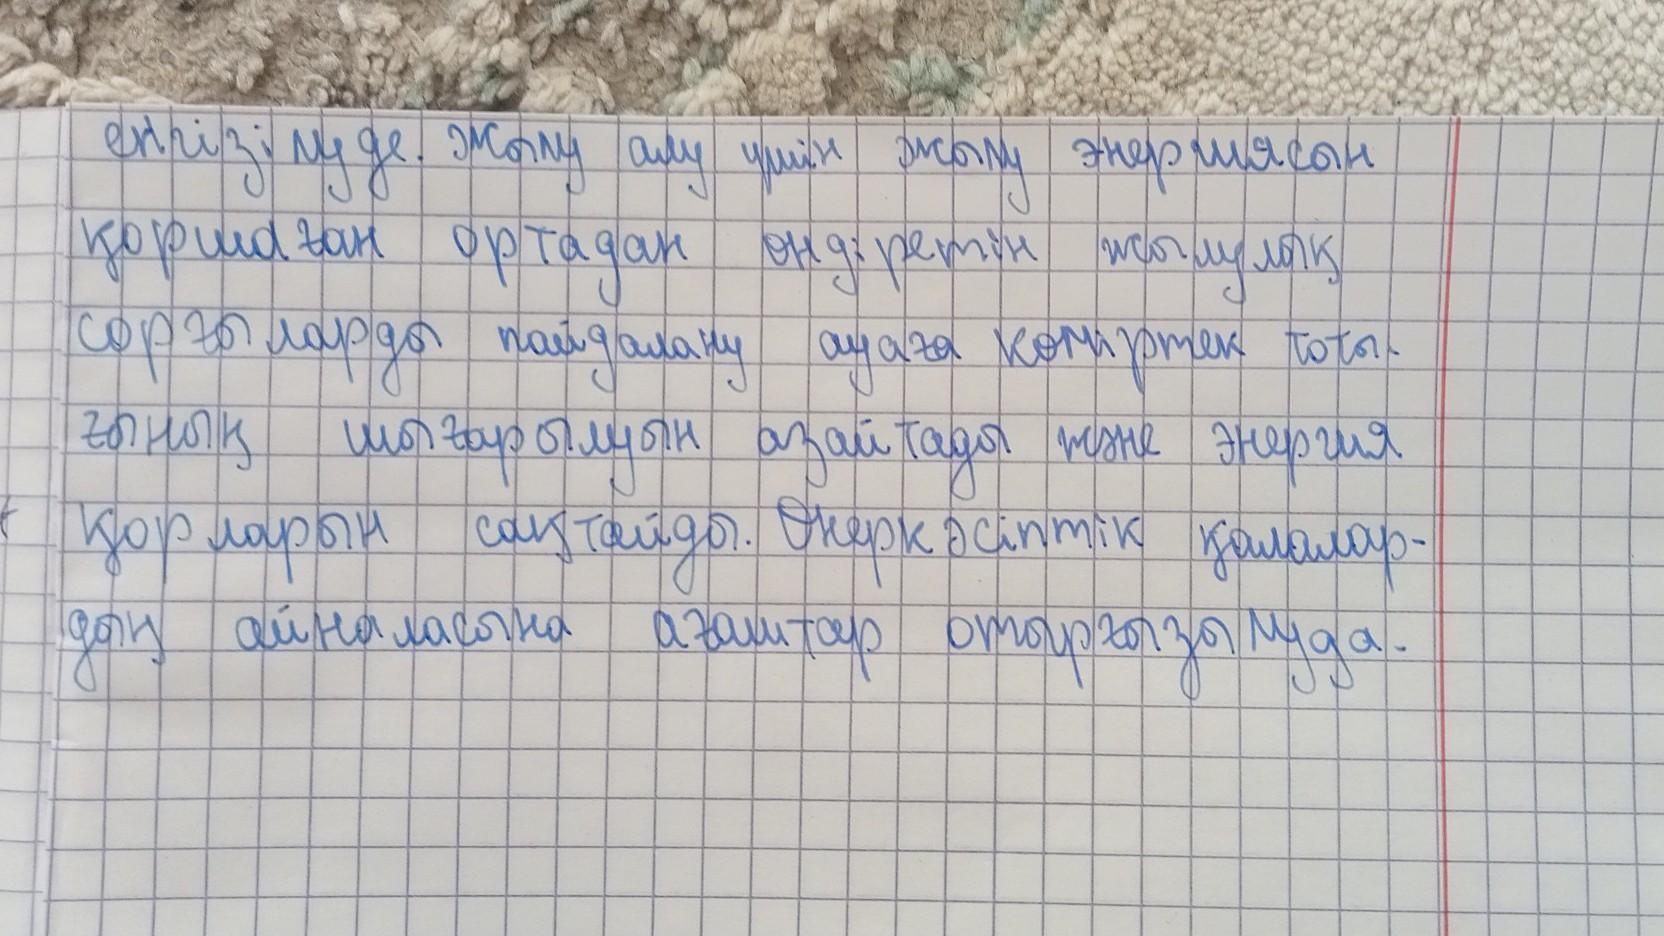 енгізілуде. Жылу алу үшін жылу энергиясын
қоршаған ортадан өндіретін жылулық
сорғыларды пайдалану ауаға көміртек тоты-
ғының шығарылуын азайтады және энергия
қорларын сақтайды. Өнеркәсіптік қалалар-
дың айналасына ағаштар отырғызылуда.